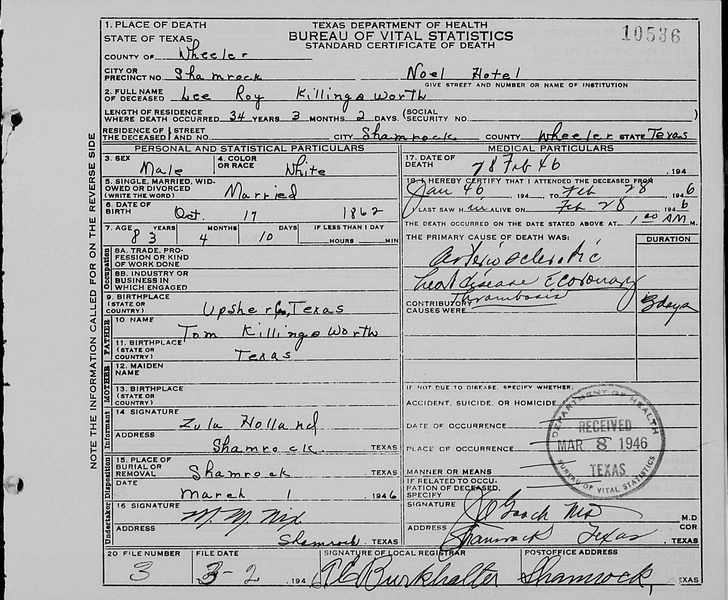 1. PLACE OF DEATH
TEXAS DEPARTMENT OF HEALTH
BUREAU OF VITAL STATISTICS
STANDARD CERTIFICATE OF DEATH
10536
STATE OF TEXAS
COUNTY OF Wheeler
CITY OR PRECINCT NO. Shamrock Noel Hotel
GIVE STREET AND NUMBER OR NAME OF INSTITUTION
2. FULL NAME OF DECEASED Lee Roy Killingsworth
LENGTH OF RESIDENCE WHERE DEATH OCCURRED 34 YEARS 3 MONTHS 2 DAYS. (SOCIAL SECURITY NO.
RESIDENCE OF THE DECEASED STREET AND NO. CITY Shamrock COUNTY Wheeler STATE Texas
PERSONAL AND STATISTICAL PARTICULARS
3. SEX Male
4. COLOR OR RACE White
5. SINGLE, MARRIED, WIDOWED OR DIVORCED (WRITE THE WORD) Married
6. DATE OF BIRTH Oct. 17 1862
7. AGE YEARS MONTHS DAYS IF LESS THAN 1 DAY
83 4 10 HOURS MIN
8A. TRADE, PROFESSION OR KIND OF WORK DONE
8B. INDUSTRY OR BUSINESS IN WHICH ENGAGED
Occupation
9. BIRTHPLACE (STATE OR COUNTRY) Upsher Co, Texas
FATHER
10 NAME Tom Killingsworth
11. BIRTHPLACE (STATE OR COUNTRY) Texas
MOTHER
12. MAIDEN NAME
13. BIRTHPLACE (STATE OR COUNTRY)
Informant
14 SIGNATURE Zula Holland
ADDRESS Shamrock TEXAS
Disposition
15. PLACE OF BURIAL OR REMOVAL Shamrock TEXAS
DATE March 1 1946
Undertaker
16 SIGNATURE M. M. Nix
ADDRESS Shamrock TEXAS
MEDICAL PARTICULARS
17. DATE OF DEATH 28 Feb 46 , 194
18. I HEREBY CERTIFY THAT I ATTENDED THE DECEASED FROM
Jan 46 194 TO Feb 28 1946
I LAST SAW H im ALIVE ON Feb 28 1946
THE DEATH OCCURRED ON THE DATE STATED ABOVE AT 1 00 AM M.
THE PRIMARY CAUSE OF DEATH WAS: DURATION
arteriosclerotic
heart disease & coronary
thrombosis
CONTRIBUTORY CAUSES WERE 3 days
IF NOT DUE TO DISEASE, SPECIFY WHETHER:
ACCIDENT, SUICIDE, OR HOMICIDE
DATE OF OCCURRENCE
PLACE OF OCCURRENCE
MANNER OR MEANS
IF RELATED TO OCCUPATION OF DECEASED, SPECIFY
DEPARTMENT OF HEALTH
RECEIVED
MAR 8 1946
TEXAS
BUREAU OF VITAL STATISTICS
SIGNATURE Gooch MD M.D
COR
ADDRESS Shamrock Texas , TEXAS
20 FILE NUMBER FILE DATE SIGNATURE OF LOCAL REGISTRAR POSTOFFICE ADDRESS
3 3-2 , 194 Burkhalter Shamrock, EXAS
NOTE THE INFORMATION CALLED FOR ON THE REVERSE SIDE